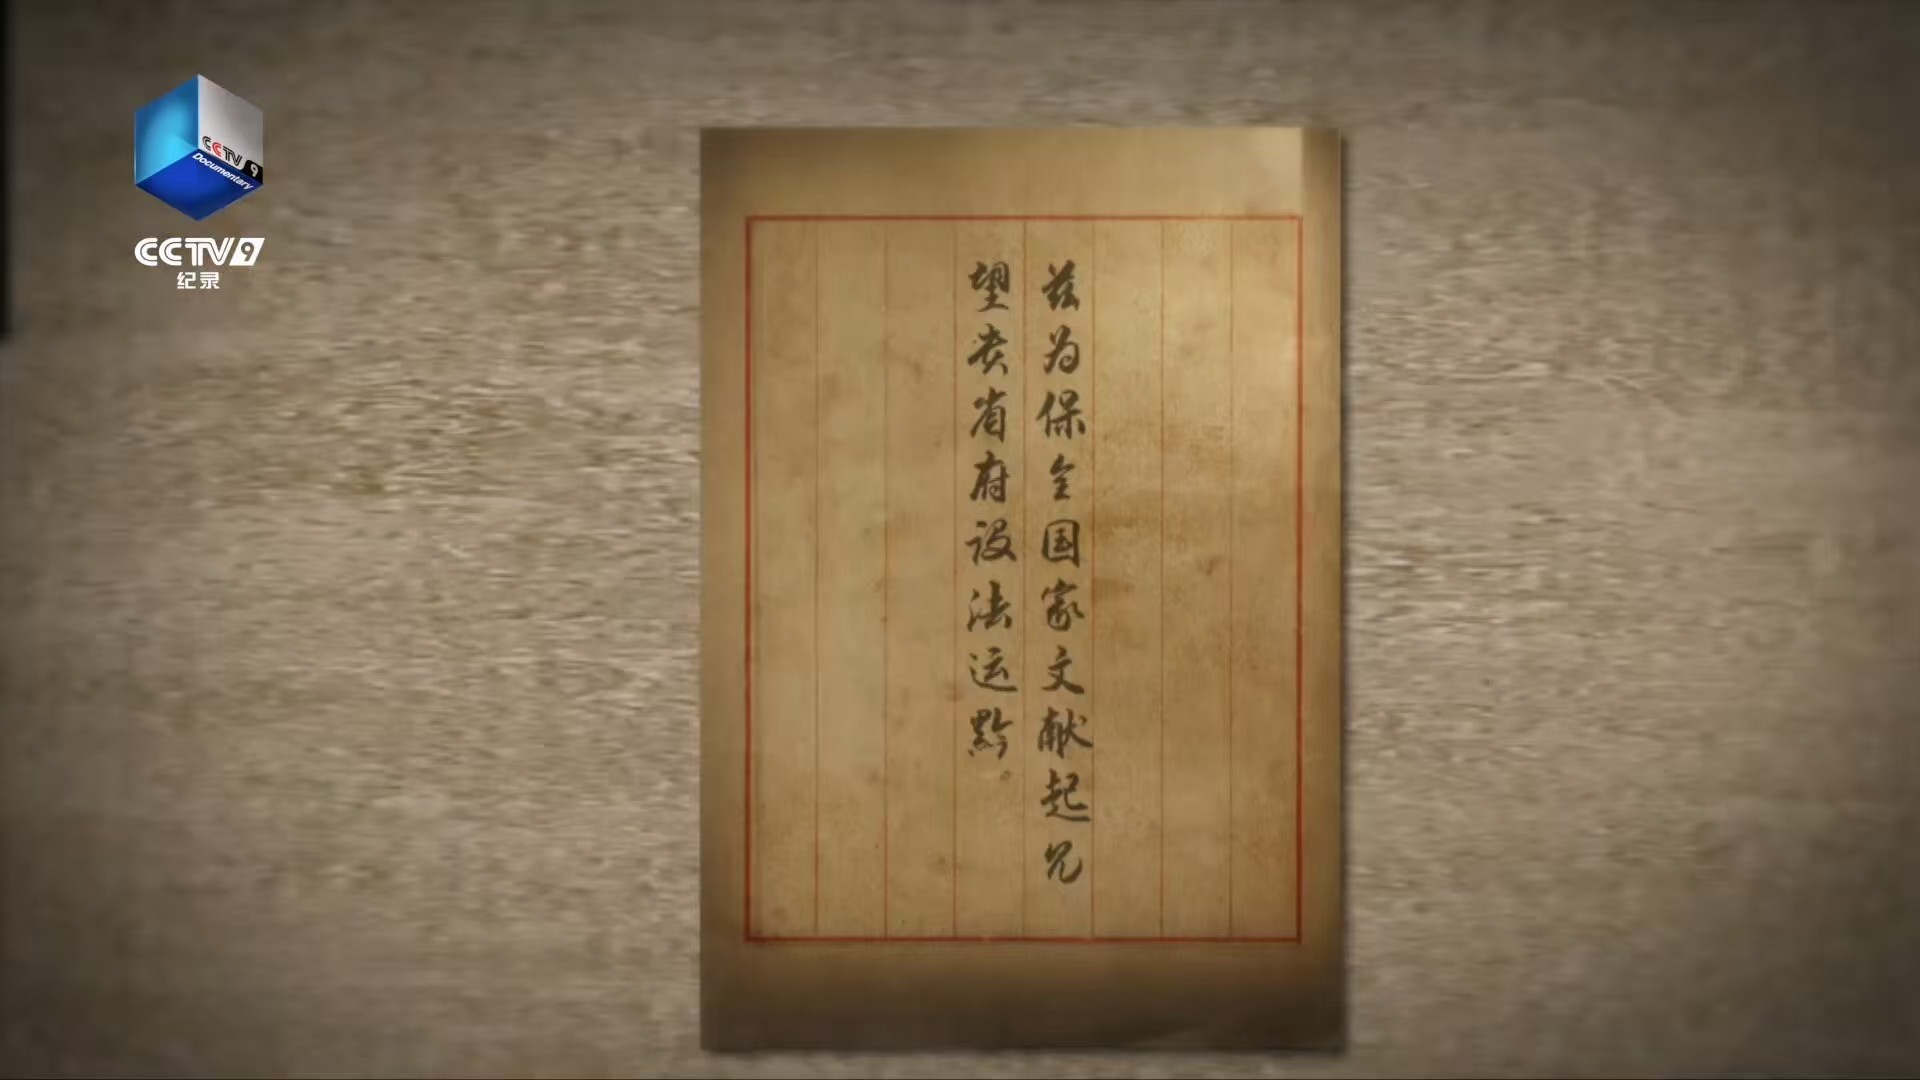 CCTV 9
Documentary
CCTV9
纪录
兹为保全国家文献起见
望贵省府设法运黔。